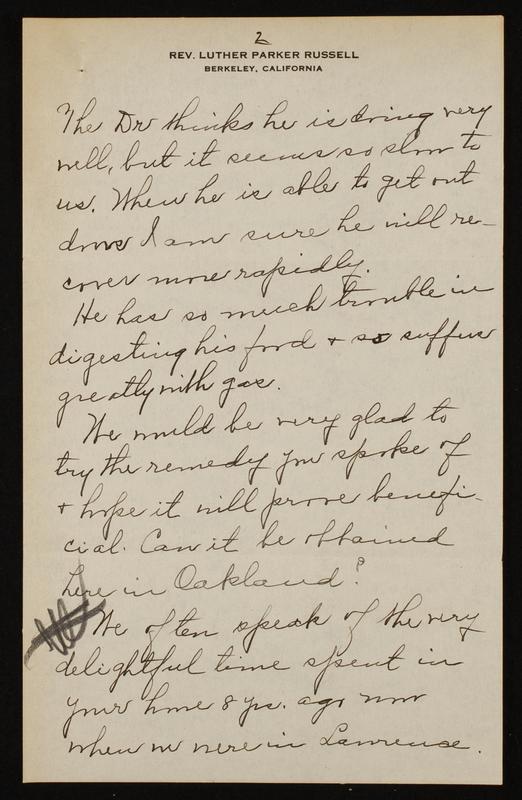 2
REV. LUTHER PARKER RUSSELL
BERKELEY, CALIFORNIA
The Dr thinks he is doing very
well, but it seems so slow to
us. When he is able to get out
doors I am sure he will re-
cover more rapidly.
He has so much trouble in
digesting his food + so suffers
greatly with gas.
We would be very glad to
try the remedy you spoke of
+ hope it will prove benefi-
cial. Can it be obtained
here in Oakland?
We often speak of the very
delightful time spent in
your home 8 yrs. ago now
when we were in Lawrence.